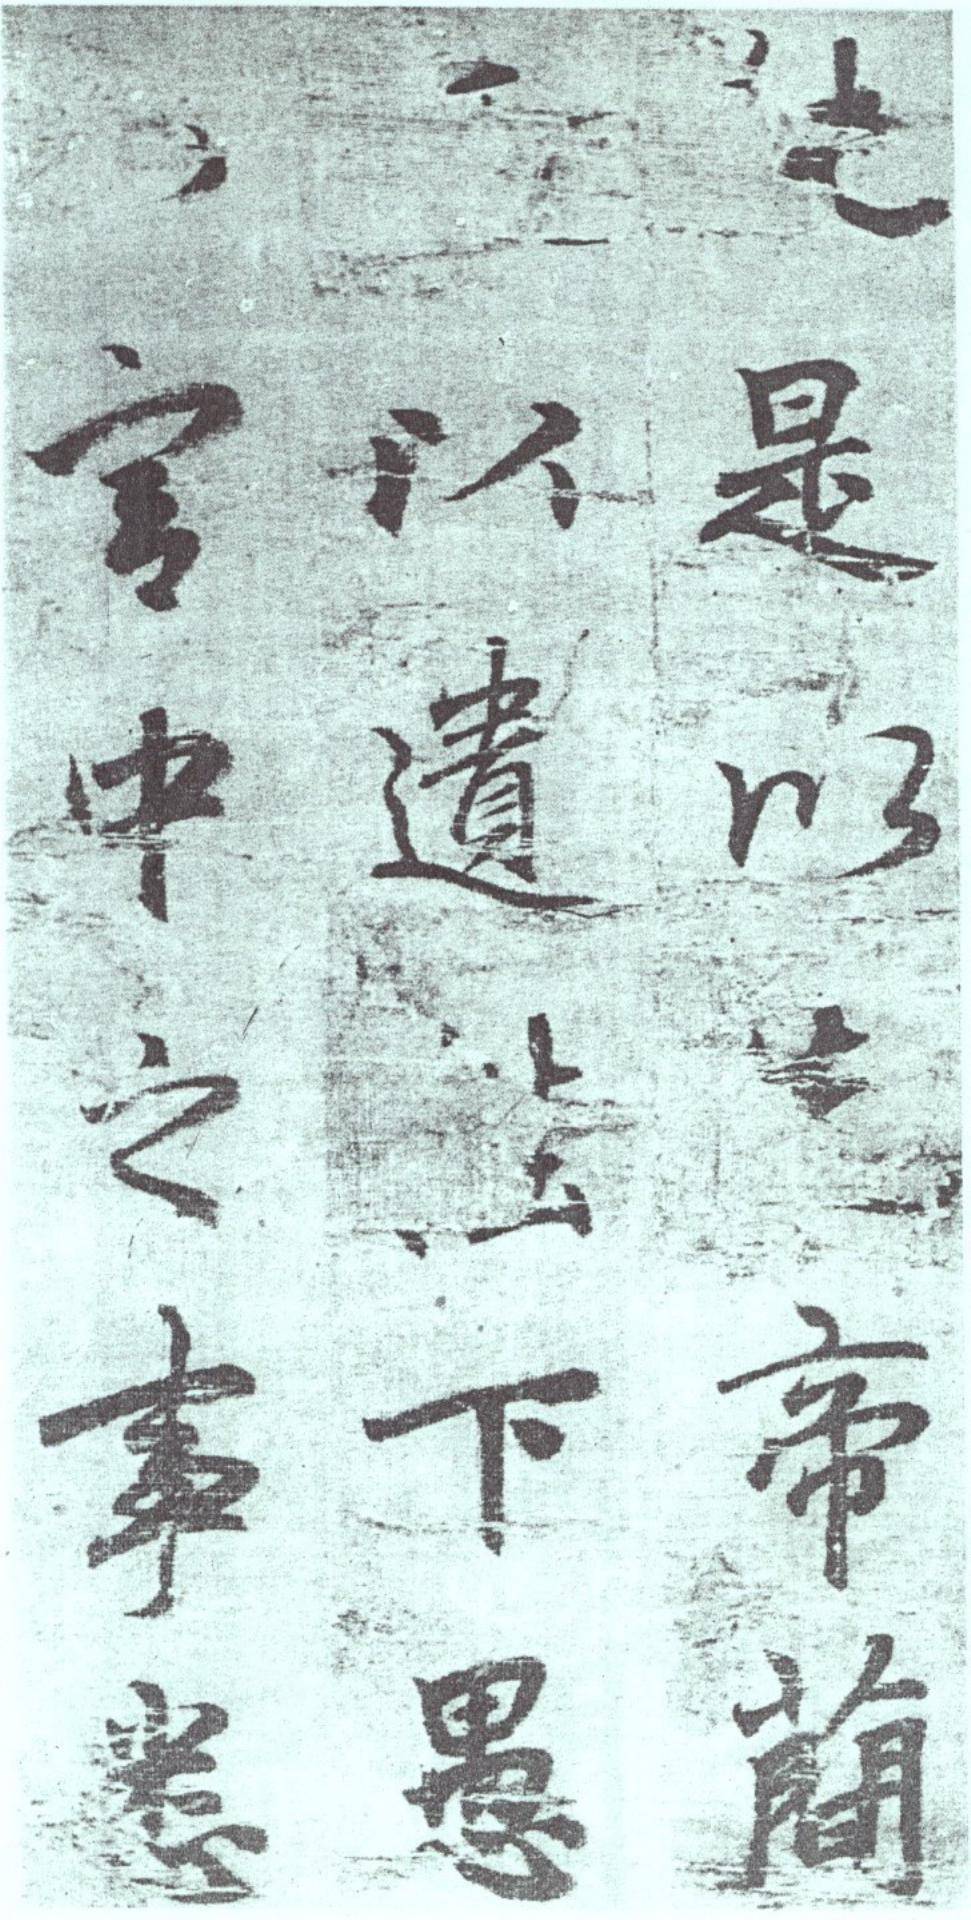 純是以先帝簡
以遺陛下愚
宮中之事悉